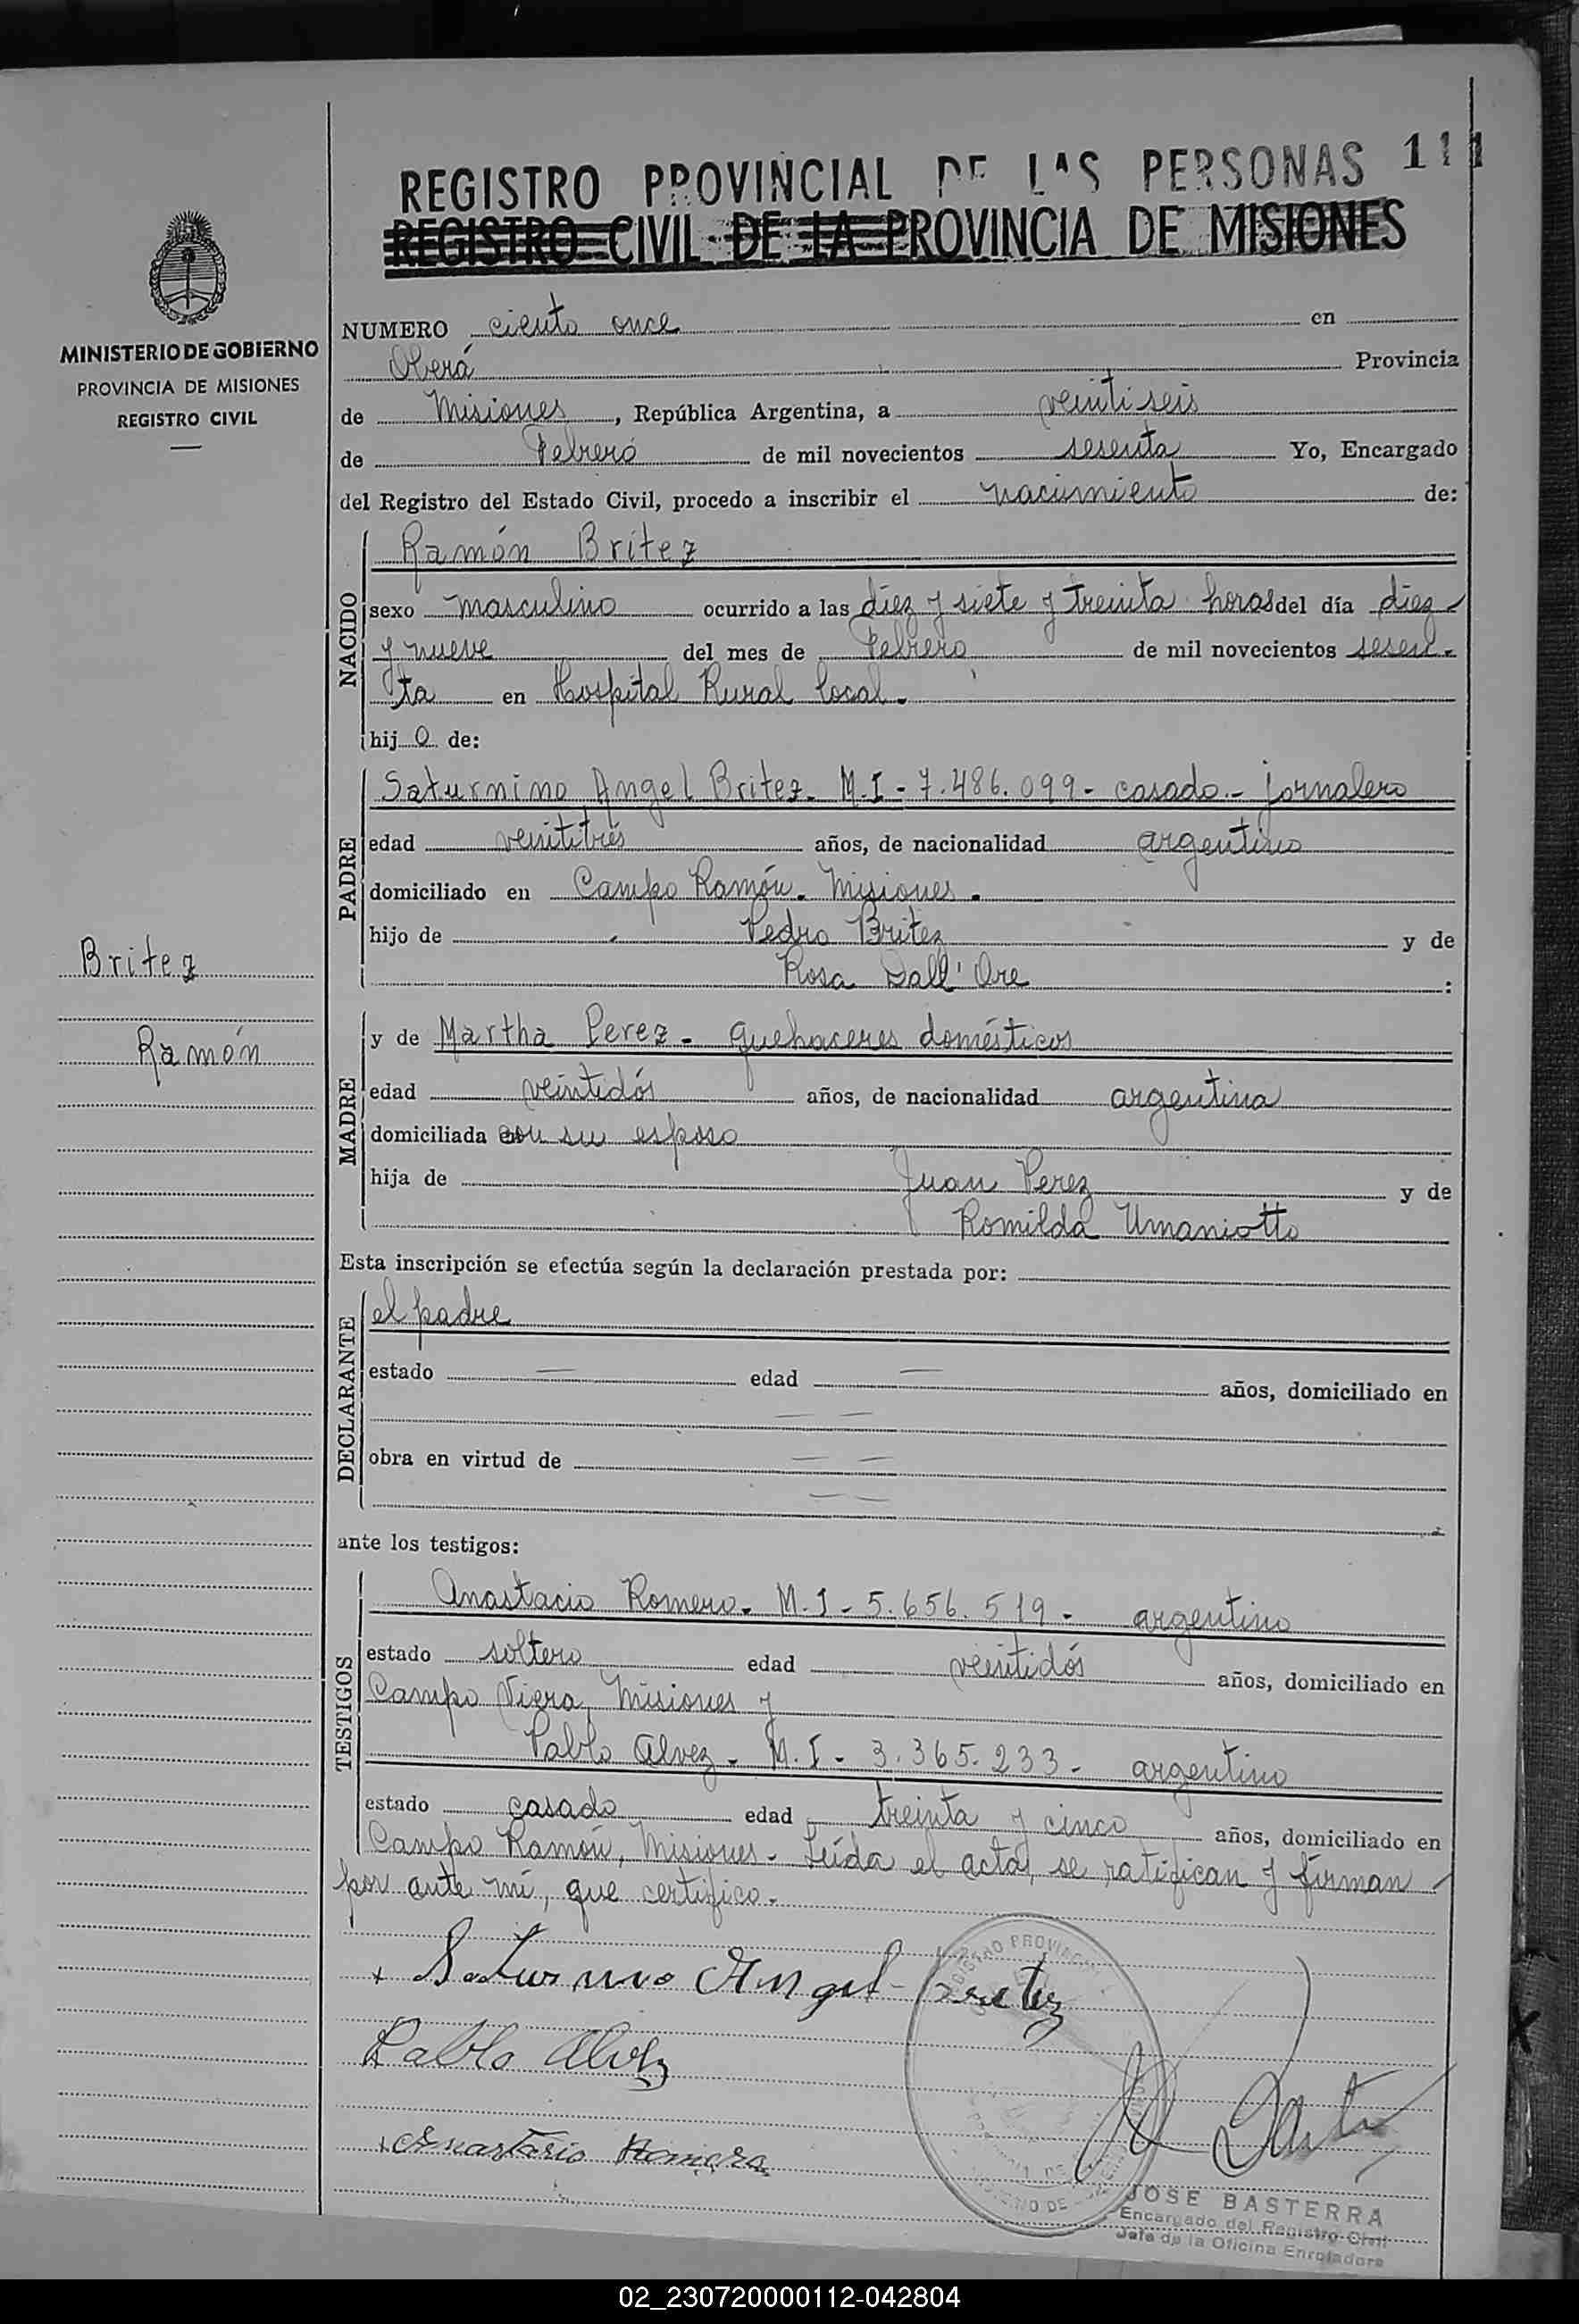 REGISTRO PROVINCIAL DE LAS PERSONAS 111
REGISTRO CIVIL DE LA PROVINCIA DE MISIONES
MINISTERIO DE GOBIERNO
PROVINCIA DE MISIONES
REGISTRO CIVIL
NUMERO ciento once en
Oberá Provincia
de Misiones, República Argentina, a veintiseis
de Febrero de mil novecientos sesenta Yo, Encargado
del Registro del Estado Civil, procedo a inscribir el nacimiento de:
NACIDO
Ramón Britez
sexo masculino ocurrido a las diez y siete y treinta horas del día diez
y nueve del mes de Febrero de mil novecientos sesen-
ta en Hospital Rural local.
hijo de:
PADRE
Saturnino Angel Britez. M.I - 7.486.099 - casado.- jornalero
edad veintitrés años, de nacionalidad argentino
domiciliado en Campo Ramón. Misiones.
hijo de Pedro Britez y de
Rosa Dall'Ore :
Britez
Ramón
MADRE
y de Martha Perez - quehaceres domésticos
edad veintidós años, de nacionalidad argentina
domiciliada con su esposo
hija de Juan Perez y de
Romilda Umaniotto
Esta inscripción se efectúa según la declaración prestada por:
DECLARANTE
el padre
estado — edad — años, domiciliado en
— —
obra en virtud de — —
— —
ante los testigos:
TESTIGOS
Anastacio Romero. M.I - 5.656.519 - argentino
estado soltero edad veintidós años, domiciliado en
Campo Viera, Misiones y
Pablo Alvez - M.I - 3.365.233 - argentino
estado casado edad treinta y cinco años, domiciliado en
Campo Ramón, Misiones. Leída el acta, se ratifican y firman
por ante mí, que certifico.
Saturnino Angel Britez
Pablo Alvez
Anastacio Romero
JOSE BASTERRA
Encargado del Registro Civil
Jefe de la Oficina Enroladora
02_230720000112-042804